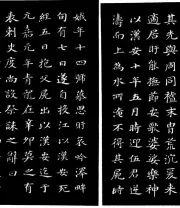 其先與周同祖末胄荒沉爰来
適居盱能撫節安歌婆娑樂神
以漢安二年五月時迎伍君逆
濤而上為水所淹不得其屍時
娥年十四號慕思盱哀吟澤畔
旬有七日遂自投江死經
五日抱父屍出以漢安迄于
元嘉元年青龍在辛卯莫之有
表刺史度尚設祭誄之辭曰